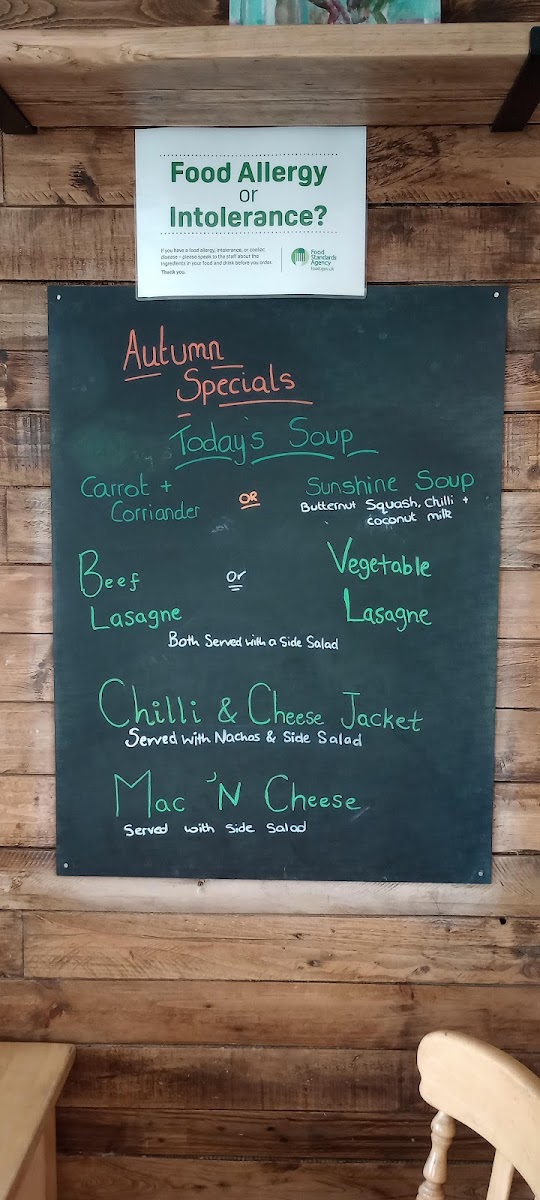 Food Allergy
or
Intolerance?
If you have a food allergy, intolerance, or coeliac
disease – please speak to the staff about the
ingredients in your food and drink before you order.
Thank you.
Food
Standards
Agency
food.gov.uk
Autumn
Specials
Today's Soup
Carrot +
Corriander
OR
Sunshine Soup
Butternut Squash, Chilli +
coconut milk
Beef
Lasagne
or
Vegetable
Lasagne
Both Served with a Side Salad
Chilli & Cheese Jacket
Served with Nachos & Side Salad
Mac 'N Cheese
Served with Side Salad